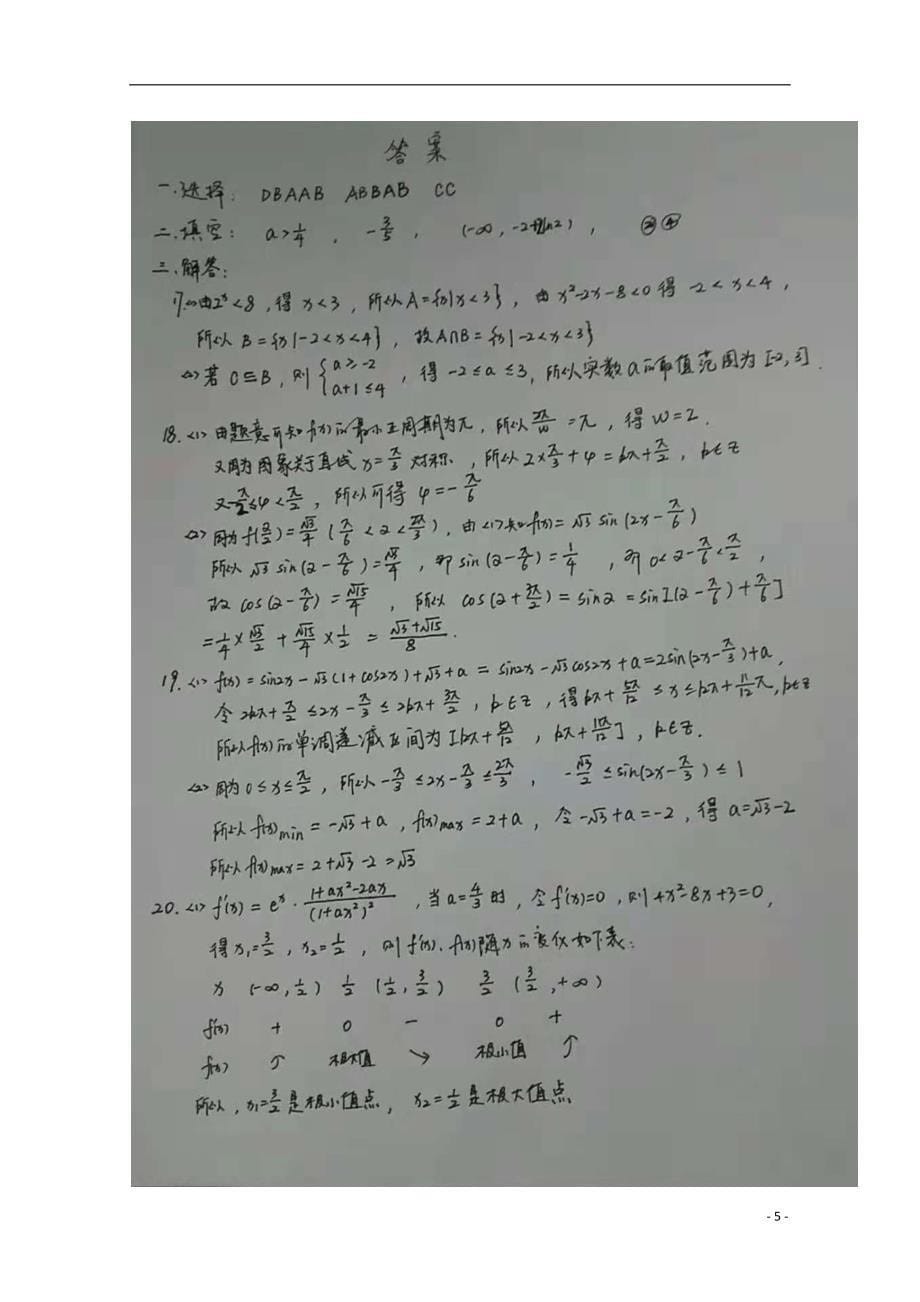 答案
一.选择: DBAAB ABBAB CC
二.填空: a>1/4 , -3/5 , (-∞, -2+2ln2) , ③④
三.解答:
17.<1>由2ˣ<8,得x<3,所以A={x|x<3},由x²-2x-8<0得-2<x<4,
所以B={x|-2<x<4},故A∩B={x|-2<x<3}
<2>若C⊆B,则{a≥-2 a+1≤4,得-2≤a≤3,所以实数a的取值范围为[-2,3].
18.<1>由题意可知f(x)的最小正周期为π,所以2π/w=π,得w=2.
又因为图象关于直线x=π/3对称,所以2×π/3+φ=kπ+π/2,k∈z
又-π/2≤φ<π/2,所以可得φ=-π/6
<2>因为f(α/2)=√3/4(π/6<α<2π/3),由<1>知f(x)=√3sin(2x-π/6)
所以√3sin(α-π/6)=√3/4,即sin(α-π/6)=1/4,而0<α-π/6<π/2,
故cos(α-π/6)=√15/4,所以cos(α+3π/2)=sinα=sin[(α-π/6)+π/6]
=1/4×√3/2+√15/4×1/2=(√3+√15)/8.
19.<1>f(x)=sin2x-√3(1+cos2x)+√3+a=sin2x-√3cos2x+a=2sin(2x-π/3)+a,
令2kπ+π/2≤2x-π/3≤2kπ+3π/2,k∈z,得kπ+5π/12≤x≤kπ+11/12π,k∈z
所以f(x)的单调递减区间为[kπ+5π/12,kπ+11π/12],k∈z.
<2>因为0≤x≤π/2,所以-π/3≤2x-π/3≤2π/3,-√3/2≤sin(2x-π/3)≤1
所以f(x)min=-√3+a,f(x)max=2+a,令-√3+a=-2,得a=√3-2
所以f(x)max=2+√3-2=√3
20.<1>f'(x)=eˣ·(1+ax²-2ax)/(1+ax²)²,当a=4/3时,令f'(x)=0,则4x²-8x+3=0,
得x₁=3/2,x₂=1/2,则f'(x).f(x)随x的变化如下表:
x (-∞,1/2) 1/2 (1/2,3/2) 3/2 (3/2,+∞)
f'(x) + 0 - 0 +
f(x) ↑ 极大值 ↘ 极小值 ↑
所以,x₁=3/2是极小值点,x₂=1/2是极大值点
- 5 -